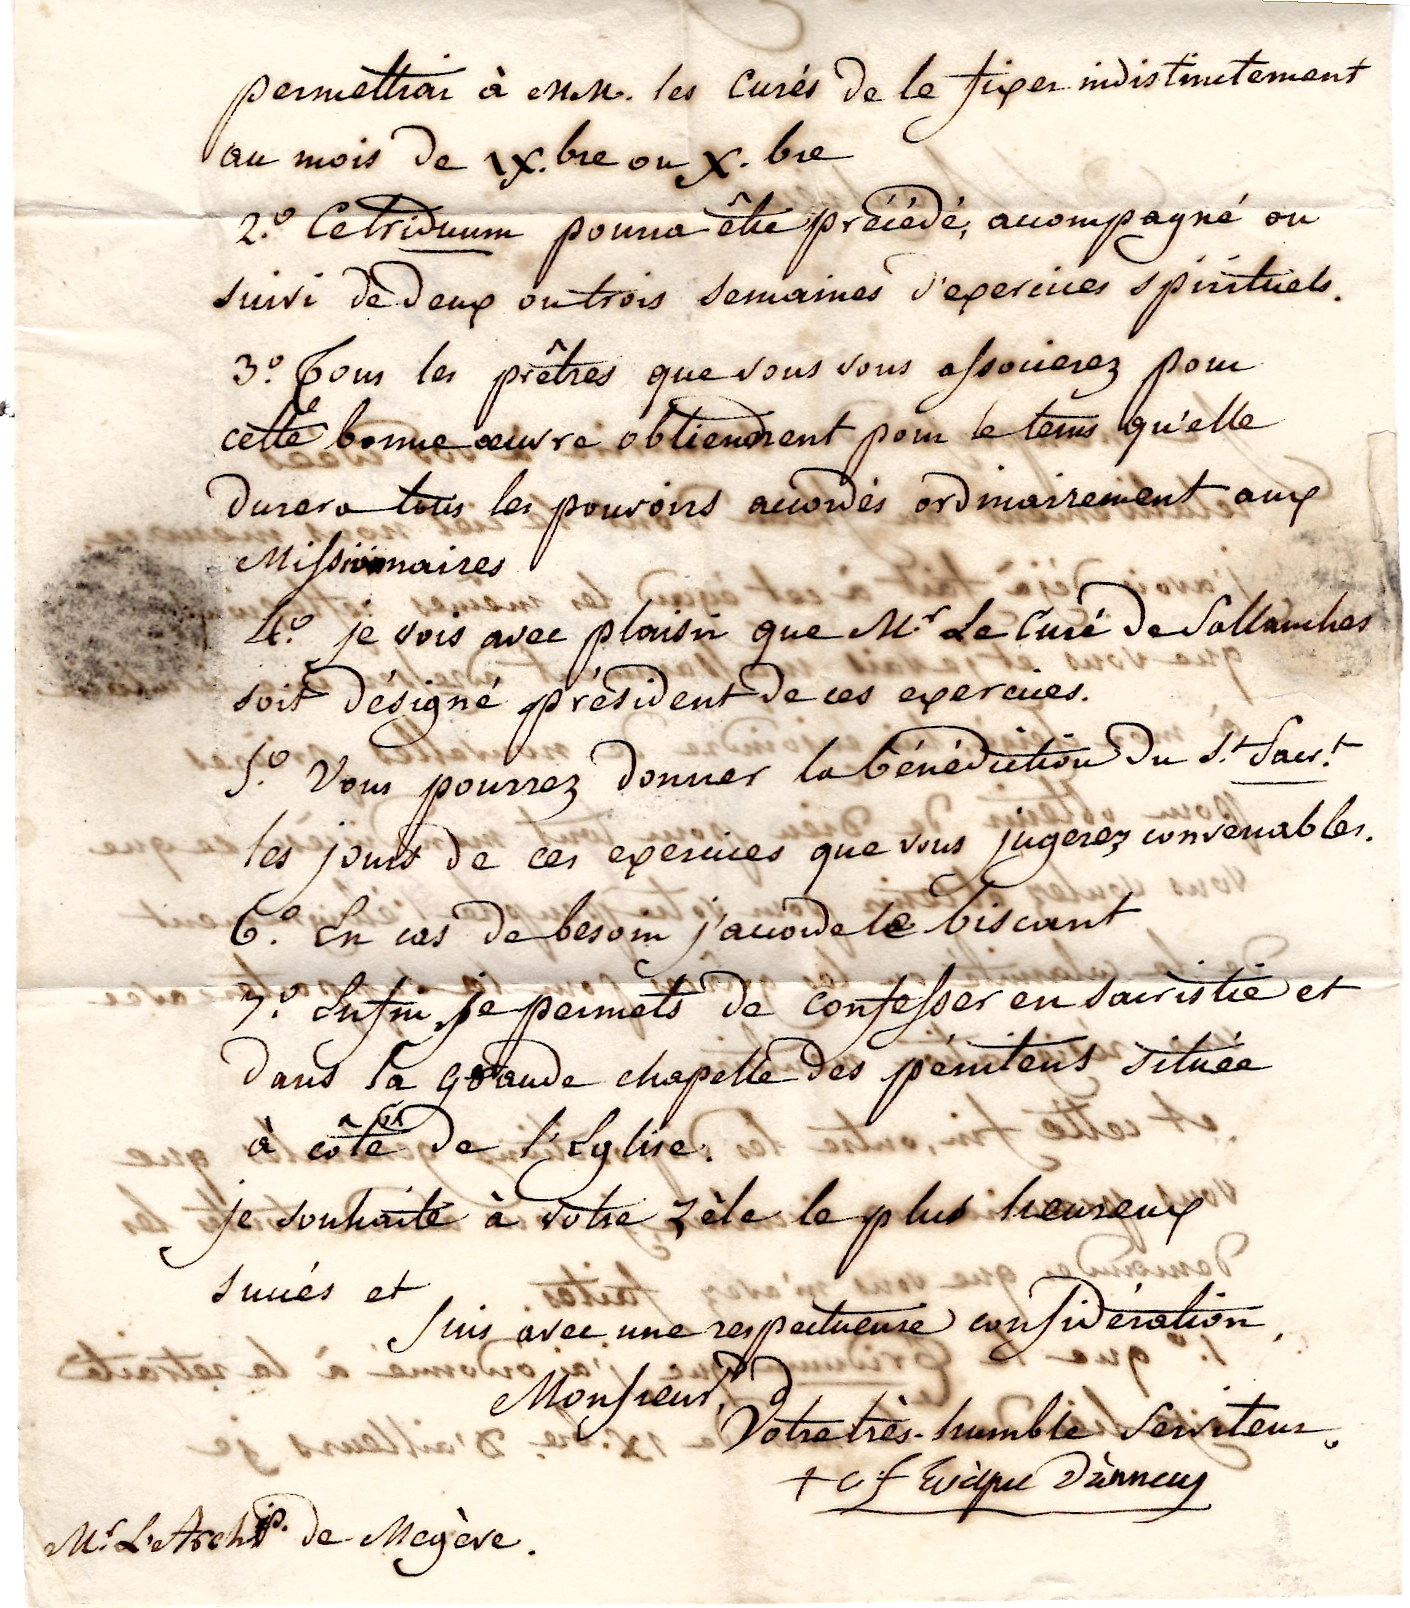 permettrai à MM. les Curés de le fixer indistinctement
au mois de IX.bre ou X.bre
2.o Ce triduum pourra être précédé, accompagné ou
suivi de deux ou trois semaines d'exercices spirituels.
3.o Tous les prêtres que vous vous associerez pour
cette bonne œuvre obtiendrent pour le tems qu'elle
durera tous les pouvoirs accordés ordinairement aux
Missionnaires
4.o je vois avec plaisir que M.r Le Curé de Sallanches
soit désigné président de ces exercices.
5.o Vous pourrez donner la bénédiction du S.t Sacr.t
les jours de ces exercices que vous jugerez convenables.
6.o En cas de besoin j'accorde le biscant
7.o Enfin je permets de confesser en sacristie et
dans la grande chapelle des pénitens située
à côté de l'Eglise.
je souhaite à votre zèle le plus heureux
succés et
suis avec une respectueuse considération,
Monsieur,
Votre très-humble serviteur.
+ c f Evêque d'annecy
M.r L'Archip. de Megève.